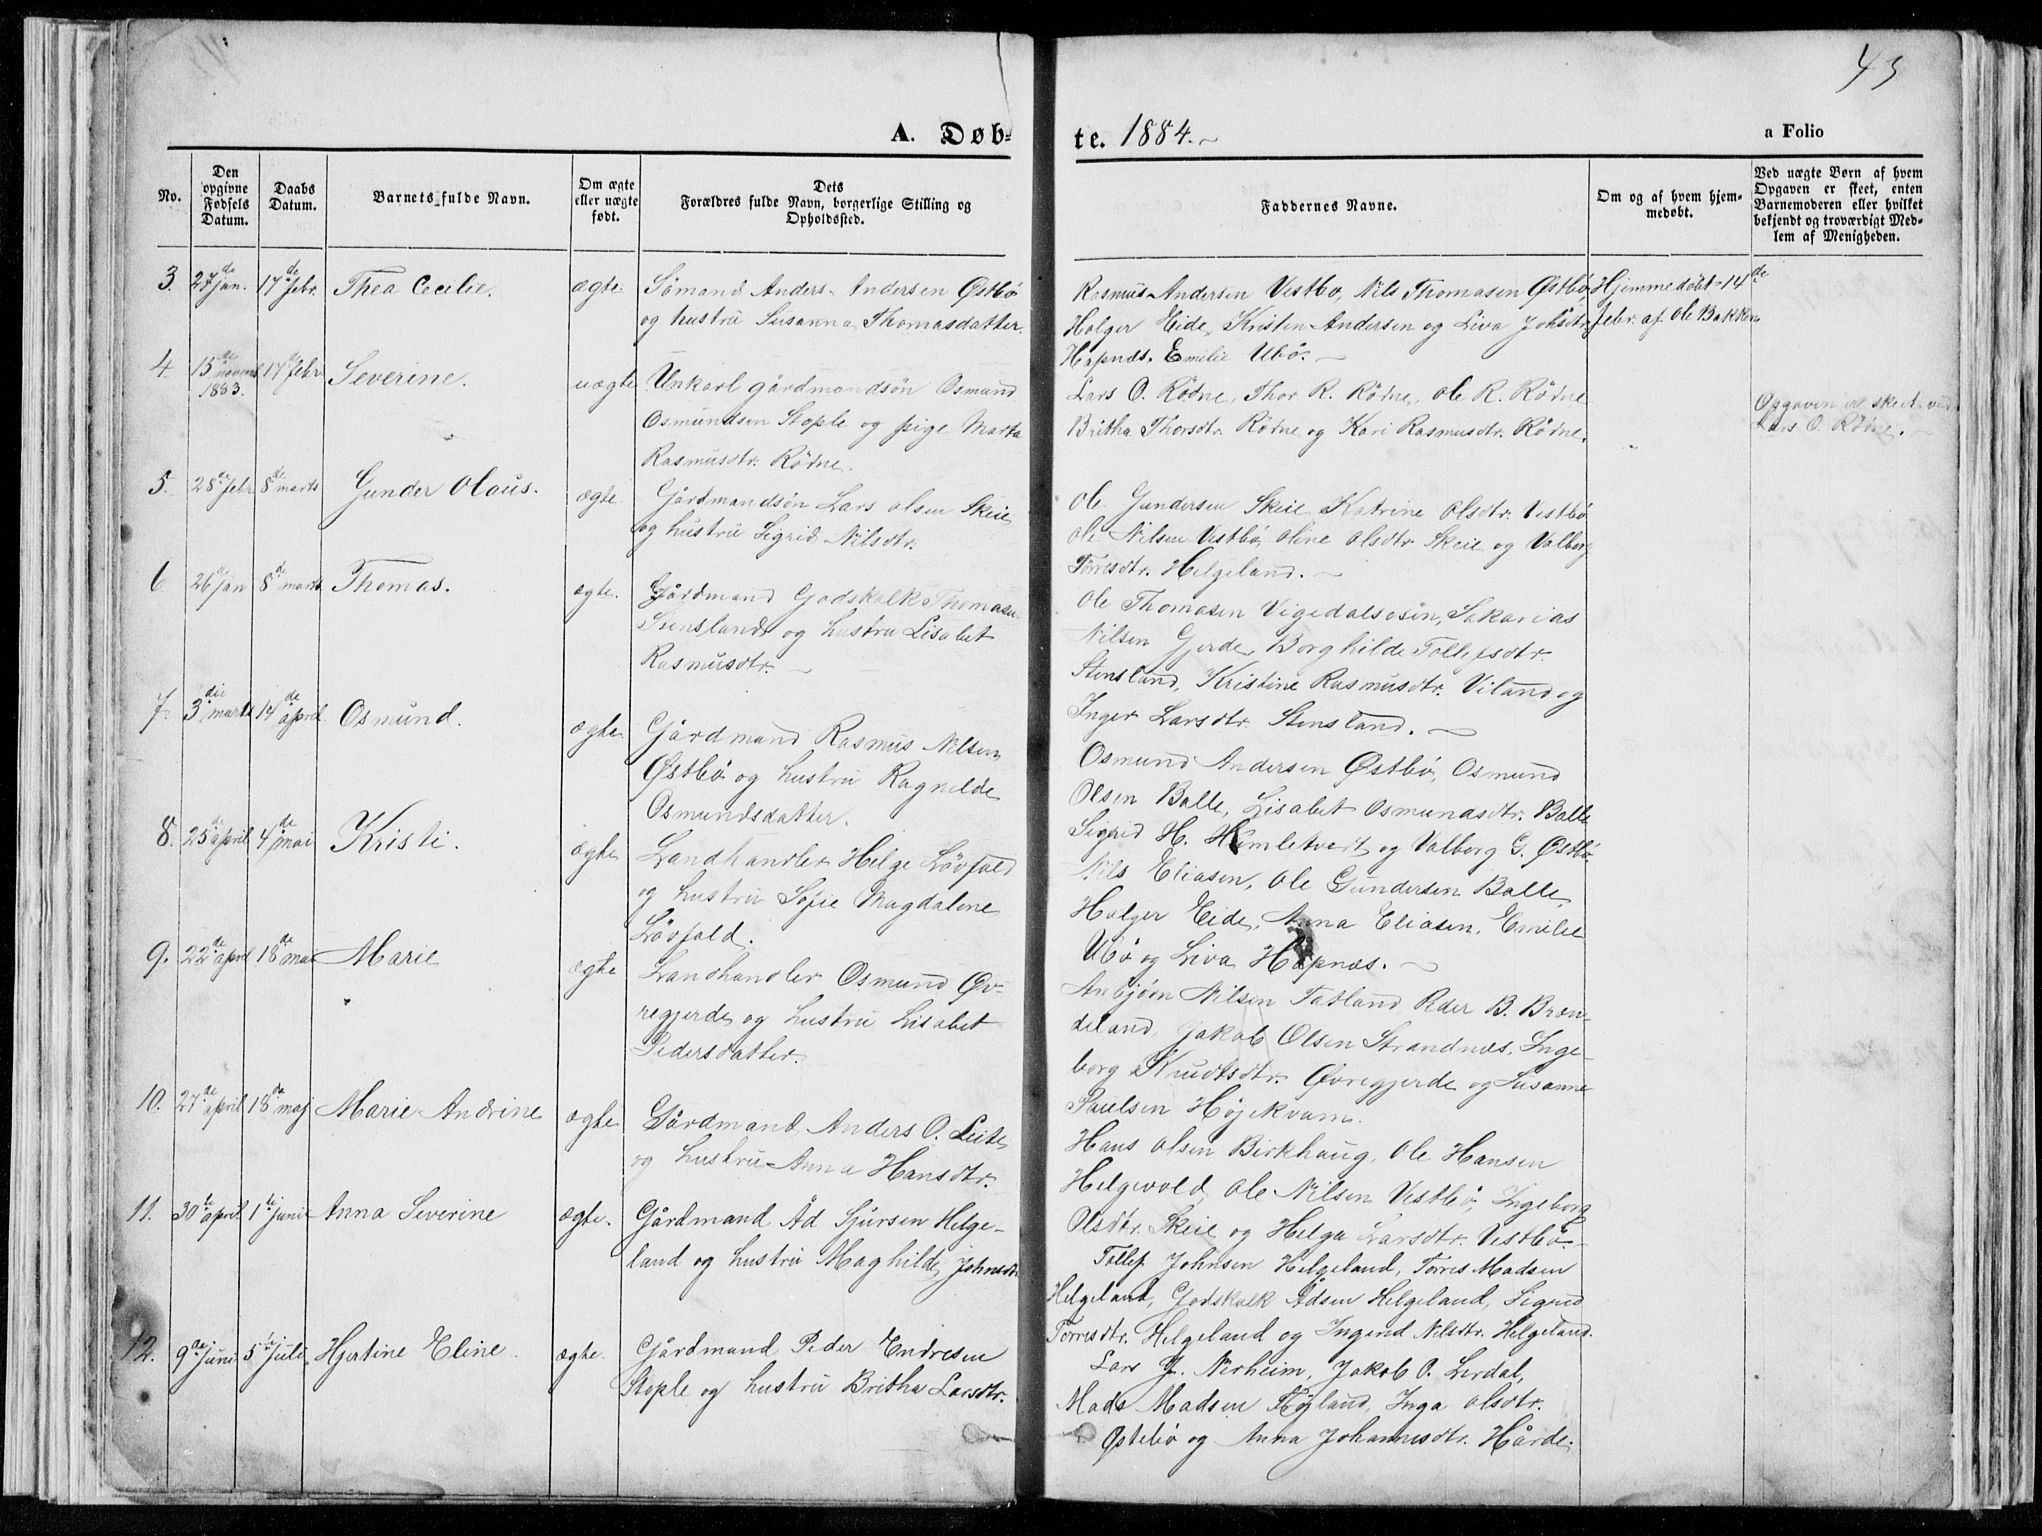 43
A. Døb-
te. 1884.
a Folio
No.
Den opgivne Fødsels Datum.
Daabs Datum.
Barnets fulde Navn.
Om ægte eller uægte født.
Dets Forældres fulde Navn, borgerlige Stilling og Opholdsted.
Faddernes Navne.
Om og af hvem hjemmedøbt.
Ved uægte Børn af hvem Opgaven er skeet, enten Barnemoderen eller hvilket bekjendt og troværdigt Medlem af Menigheden.
3. 27de jan. 17de febr. Thea Cecilie. ægte Sømand Anders Andersen Østbø
og hustru Susanna Thomasdatter.
Rasmus Andersen Vestbø, Nils Thomasen Østbø,
Holger Eide, Kristen Andersen og Liva Johsdtr.
Hapnæs. Emelie Ubø.
Hjemmedøbt 14de
febr. af Ole Bakken
4. 15de novemb 1883. 17de febr Severine. uægte Unkarl gårdmandsøn Osmund
Osmundsen Stople og pige Marta
Rasmusdtr. Rødne.
Lars O. Rødne, Thor R. Rødne, Ole R. Rødne
Britha Thorsdtr. Rødne og Kari Rasmusdtr. Rødne.
Opgaven er skeet ved
Lars O. Rødne.
5. 28de febr 8de marts Gunder Olaus. ægte Gårdmandsøn Lars Olsen Skeie
og hustru Sigrid Nilsdtr.
Ole Gundersen Skeie Katrine Olsdtr. Vestbø
Ole Nilsen Vestbø, Oline Olsdtr Skeie og Valborg
Torresdtr. Helgeland.
6 26de jan 8de marts Thomas. ægte. Gårdmand Godskalk Thomasen
Stensland og hustru Lisabet
Rasmusdtr.
Ole Thomasen Vigedalsosen, Sakarias
Nilsen Gjerde, Borghilde Tollefsdtr.
Stensland, Kristine Rasmusdtr. Viland og
Inger Larsdtr. Stensland.
7. 3die marts 14de april Osmund. ægte Gårdmand Rasmus Nilsen
Østbø og hustru Ragnilde
Osmundsdatter.
Osmund Andersen Østbø, Osmund
Olsen Balle, Lisabet Osmundsdtr. Balle
Sigrid H. Hamletvedt og Valborg G. Østbø.
8. 25de april 4de mai Kristi. ægte Landhandler Helge Løvfald
og hustru Sofie Magdalene
Løvfald.
Nils Eliasen, Ole Gundersen Balle,
Holger Eide, Anna Eliasen, Emelie
Ubø og Liva Hapnæs.
9. 22de april 18de mai Marie ægte Landhandler Osmund Øv-
regjerde og hustru Lisabet
Pedersdatter.
Anbjørn Nilsen Tatland Peder B. Bræn-
deland, Jakob Olsen Strandnæs, Inge-
borg Knudtsdtr. Øvregjerde og Susanne
Paulsen Højekvam.
10. 27de april 18de maj Marie Andrine ægte Gårdmand Anders O. Leite
og hustru Anna Hansdtr.
Hans Olsen Birkhaug, Ole Hansen
Helgevold, Ole Nilsen Vestbø, Ingeborg
Olsdtr. Skeie og Helga Larsdtr. Vestbø.
11. 30te april 1ste junie Anna Severine ægte. Gårdmand Åd Sjursen Helge-
land og hustru Maghilde Johnsdtr
Tollef Johnsen Helgeland, Torres Madsen
Helgeland, Godskalk Ådsen Helgeland, Sigrid
Torresdtr. Helgeland og Ingerid Nilsdtr. Helgeland.
12. 9de juni 5te Julie Hjertine Eline. ægte. Gårdmand Peder Endresen
Stople og hustru Britha Larsdtr.
Lars J. Nerheim, Jakob O. Lerdal,
Mads Madsen Fløjland, Inga Olsdtr.
Østebø og Anna Johannesdtr. Hårde.